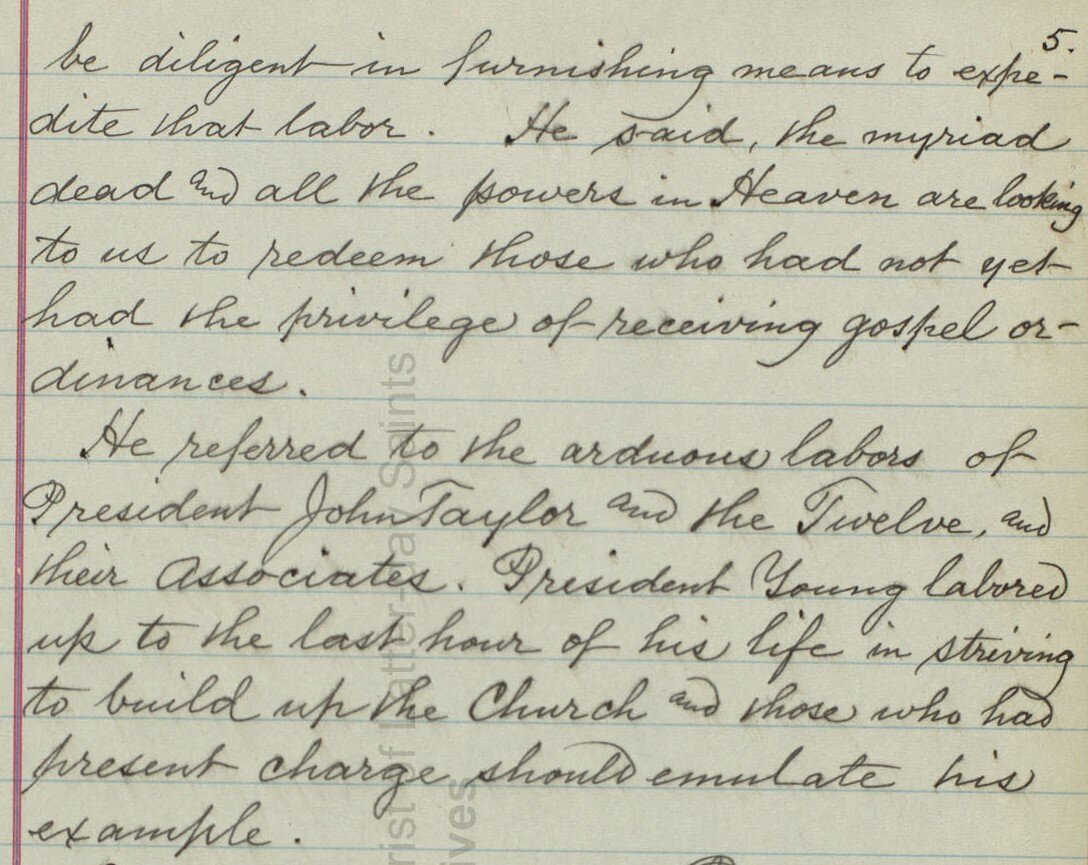 5.
be diligent in furnishing means to expe-
dite that labor. He said, the myriad
dead and all the powers in Heaven are looking
to us to redeem those who had not yet
had the privilege of receiving gospel or-
dinances.
He referred to the arduous labors of
President John Taylor and the Twelve, and
their associates. President Young labored
up to the last hour of his life in striving
to build up the Church and those who had
present charge should emulate his
example.
rist of Latter-day Saints
ives